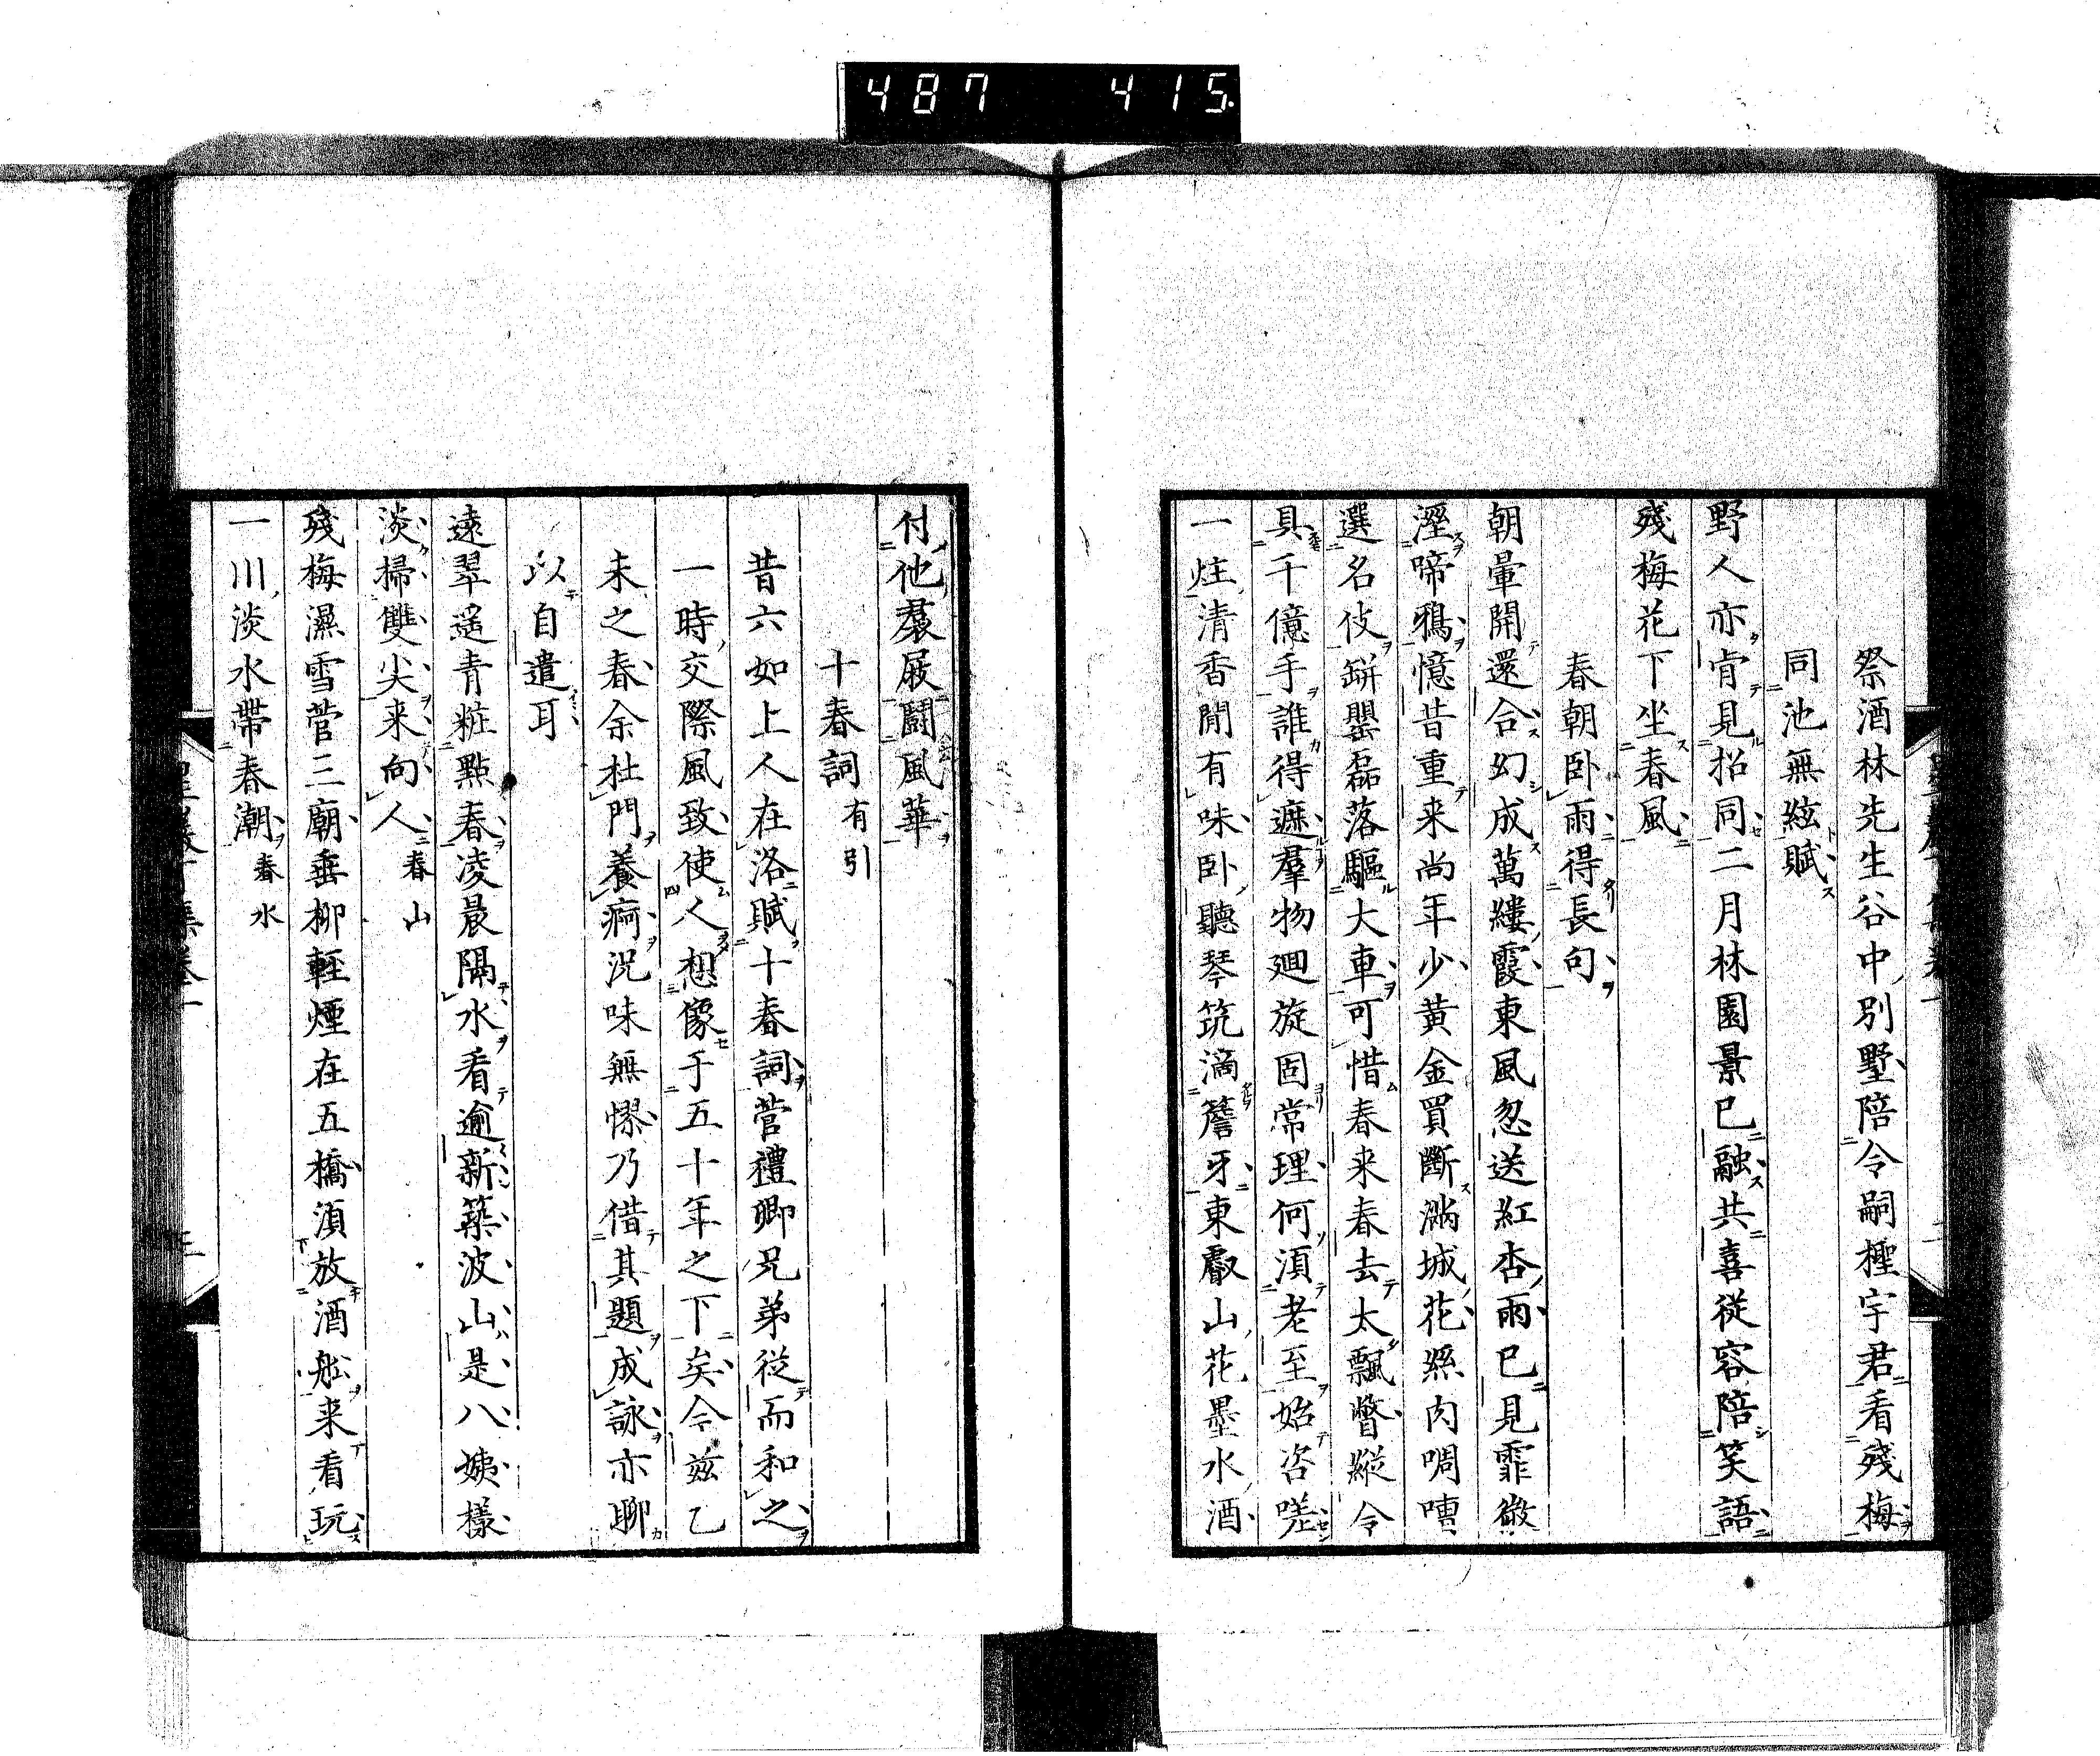 487 415
祭酒林先生谷中別墅陪令嗣檉宇君看殘梅
同池無絃賦
野人亦肯見招同二月林園景已融共喜從容陪笑語
殘梅花下坐春風
春朝臥雨得長句
朝暈開還合幻成萬縷霞東風忽送紅杏雨已見霏微
溼啼鴉憶昔重来尚年少黃金買斷滿城花絲肉啁嘈
選名伎缾罌磊落驅大車可惜春来春去太飄瞥縱令
具千億手誰得遮羣物廻旋固常理何須老至始咨嗟
一炷清香閒有味臥聽琴筑滴簷牙東叡山花墨水酒
付他羣屐鬪風華
十春詞有引
昔六如上人在洛賦十春詞菅禮卿兄弟從而和之
一時交際風致使人想像于五十年之下矣今茲乙
未之春余杜門養痾況味無憀乃借其題成詠亦聊
以自遣耳
遠翠遥青粧點春凌晨隔水看逾新築波山是八姨樣
淡掃雙尖来向人春山
殘梅濕雪菅三廟垂柳輕煙在五橋須放酒舩来看玩
一川淡水帶春潮春水